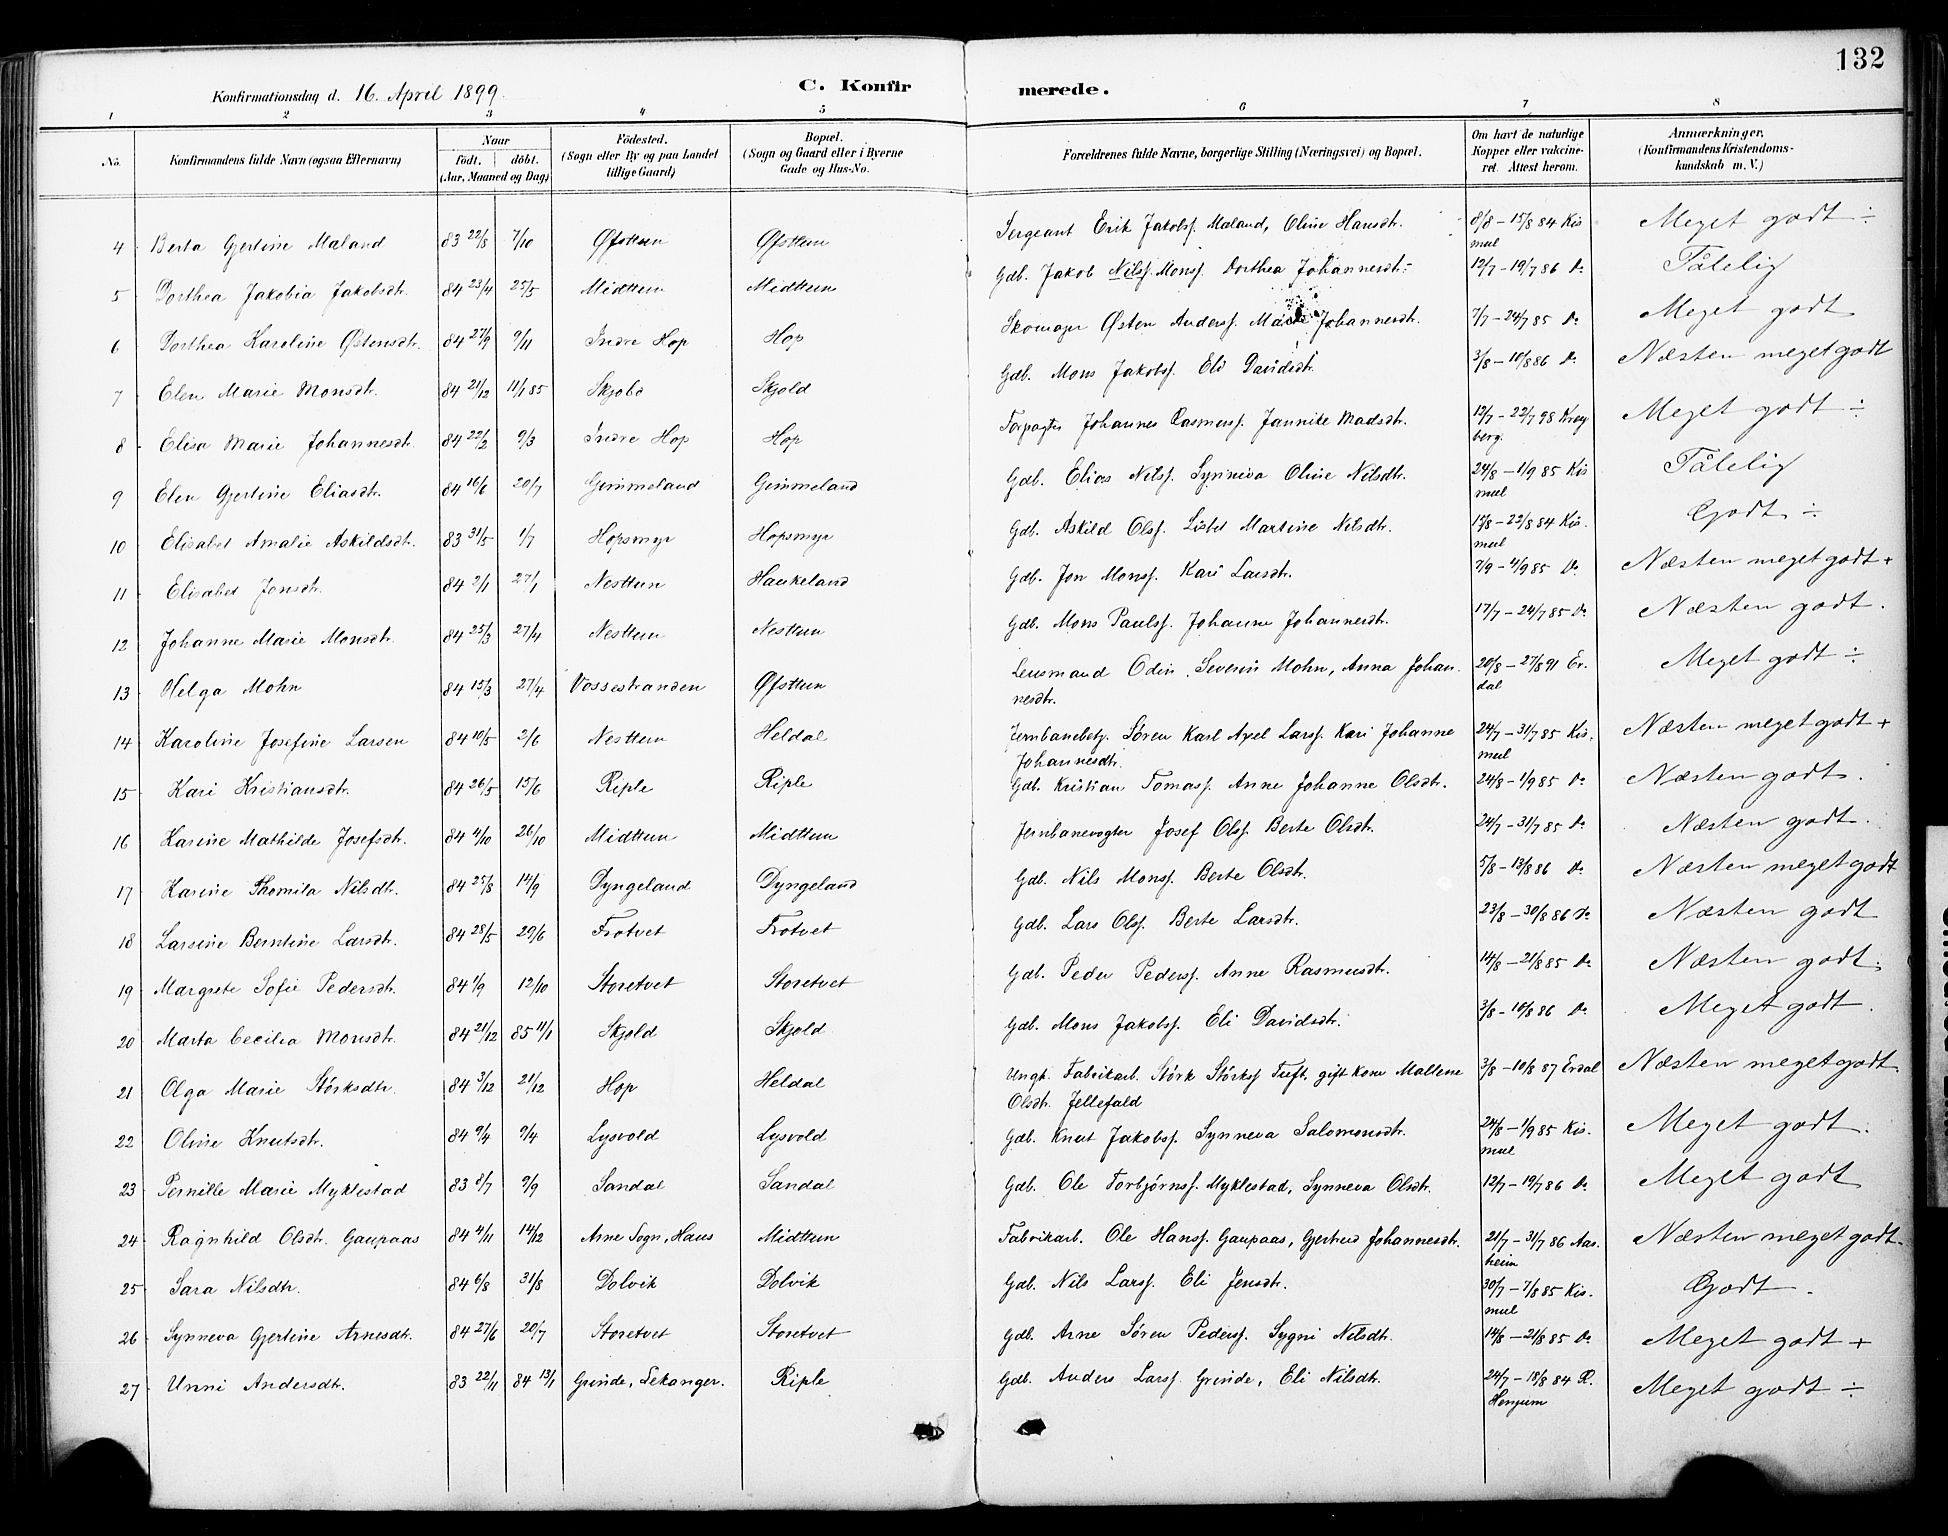 132
Konfirmationsdag d. 16. April 1899.
C. Konfirmerede.
1 2 3 4 5 6 7 8
No. | Konfirmandens fulde Navn (ogsaa Efternavn) | Naar født. døbt. (Aar, Maaned og Dag) | Fødested. (Sogn eller By og paa Landet tillige Gaard) | Bopæl. (Sogn og Gaard eller i Byerne Gade og Hus-No. | Forældrenes fulde Navne, borgerlige Stilling (Næringsvei) og Bopæl. | Om havt de naturlige Kopper eller vakcineret. Attest herom. | Anmærkninger. (Konfirmandens Kristendomskundskab m. V.)
4 Berta Gjertine Maland 83 22/8 7/10 Øfsttun Øfsttun Sergeant Erik Jakobsf. Maland, Oline Hansdtr. 8/8 – 15/8 84 Kismul Meget godt ÷
5 Dorthea Jakobia Jakobsdtr. 84 23/4 25/5 Midttun Midttun Gdb. Jakob Nilsf. Monsf. Dorthea Johannesdtr. 12/7 – 19/7 86 Do Tålelig
6 Dorthea Karoline Østensdtr. 84 27/9 9/11 Indre Hop Hop Skomager Østen Andersf. Marie Johannesdtr. 7/7 – 24/7 85 Do Meget godt
7 Elen Marie Monsdtr. 84 21/12 11/1 85 Skjold Skjold Gdb. Mons Jakobsf. Eli Davidsdtr. 3/8 – 10/8 86 Do Næsten meget godt
8 Elisa Marie Johannesdtr. 84 22/2 9/3 Indre Hop Hop Forpagter Johannes Rasmusf. Jannike Madsdtr. 12/7 – 22/7 98 Krogberg. Meget godt ÷
9 Elen Gjertine Eliasdtr. 84 16/6 20/7 Gimmeland Gimmeland Gdb. Elias Nilsf. Synneva Oline Nilsdtr. 24/8 – 1/9 85 Kismul Tålelig
10 Elisabet Amalie Askildsdtr. 83 31/5 1/7 Hopsmyr Hopsmyr Gdb. Askild Olsf. Lisbet Martine Nilsdtr. – 22/8 84 Kismul Godt ÷
11 Elisabet Jonsdtr. 84 2/1 27/1 Nesttun Haukeland Gdb. Jon Monsf. Kari Larsdtr. 85 Do Næsten meget godt +
12 Johanne Marie Monsdtr. 84 25/3 27/4 Nesttun Nesttun Gdb. Mons Paulsf. Johanne Johannesdtr. 17/7 – 24/7 85 Do Næsten godt.
13 Helga Mohn 84 15/3 27/4 Vossestranden Øfsttun Lensmand Odin Severin Mohn, Anna Johannesdtr. 20/8 – 27/8 91 Erdal Meget godt ÷
14 Karoline Josefine Larsen 84 10/5 2/6 Nesttun Heldal Jernbanebetj. Søren Karl Axel Larsf. Kari Johanne Johannesdtr. 24/7 – 31/7 85 Kismul Næsten meget godt +
15 Kari Kristiansdtr. 84 26/5 15/6 Riple Riple Gdb. Kristian Tomasf. Anne Johanne Olsdtr. 24/8 – 1/9 85 Do Næsten godt.
16 Karine Mathilde Josefsdtr. 84 4/10 26/10 Midttun Midttun Jernbanevogter Josef Olsf. Berte Olsdtr. 24/7 – 31/7 85 Do Næsten godt.
17 Karine Thomila Nilsdtr. 84 25/8 14/9 Dyngeland Dyngeland Gdb. Nils Monsf. Berte Olsdtr. 5/8 – 13/8 86 Do Næsten meget godt
18 Larsine Berntine Larsdtr. 84 28/5 29/6 Trotvet Trotvet Gdb. Lars Olsf. Berte Larsdtr. 23/8 – 30/8 86 Do Næsten godt
19 Margrete Sofie Pedersdtr. 84 1/9 12/10 Storetvet Storetvet Gdb. Peder Pedersf. Anne Rasmusdtr. 14/8 – 21/8 85 Do Næsten godt.
20 Marta Cecilia Monsdtr. 84 21/12 85 11/1 Skjold Skjold Gdb. Mons Jakobsf. Eli Davidsdtr. 3/8 – 10/8 86 Do Meget godt.
21 Olga Marie Størksdtr. 84 3/12 21/12 Hop Heldal Ungk. Fabrikarb. Størk Størksf. Tuft, gift Kone Mallene Olsdtr. Jellefald 3/8 – 10/8 87 Erdal Næsten meget godt
22 Oline Knutsdtr. 84 9/4 9/4 Lysvold Lysvold Gdb. Knut Jakobsf. Synneva Salomonsdtr. 24/8 – 1/9 85 Kismul Meget godt.
23 Pernille Marie Myklestad 83 8/7 9/9 Sandal Sandal Gdb. Ole Torbjørnsf. Myklestad, Synneva Olsdtr. 12/7 – 19/7 86 Do Meget godt
24 Ragnhild Olsdtr. Gaupaas 84 4/11 14/12 Arne Sogn, Haus Midttun Fabrikarb. Ole Hansf. Gaupaas, Gjertrud Johannesdtr. 21/7 – 31/7 86 Aasheim Næsten meget godt.
25 Sara Nilsdtr. 84 6/8 31/8 Dolvik Dolvik Gdb. Nils Larsf. Eli Jensdtr. 30/7 – 7/8 85 Kismul Godt.
26 Synneva Gjertine Arnesdtr. 84 27/6 20/7 Storetvet Storetvet Gdb. Arne Søren Pedersf. Sygni Nilsdtr. 14/8 – 21/8 85 Do Meget godt +
27 Unni Andersdtr. 83 22/11 84 13/1 Grinde, Lekanger. Riple Gdb. Anders Larsf. Grinde, Eli Nilsdtr. 24/7 – 18/8 84 R. Henjum Meget godt ÷